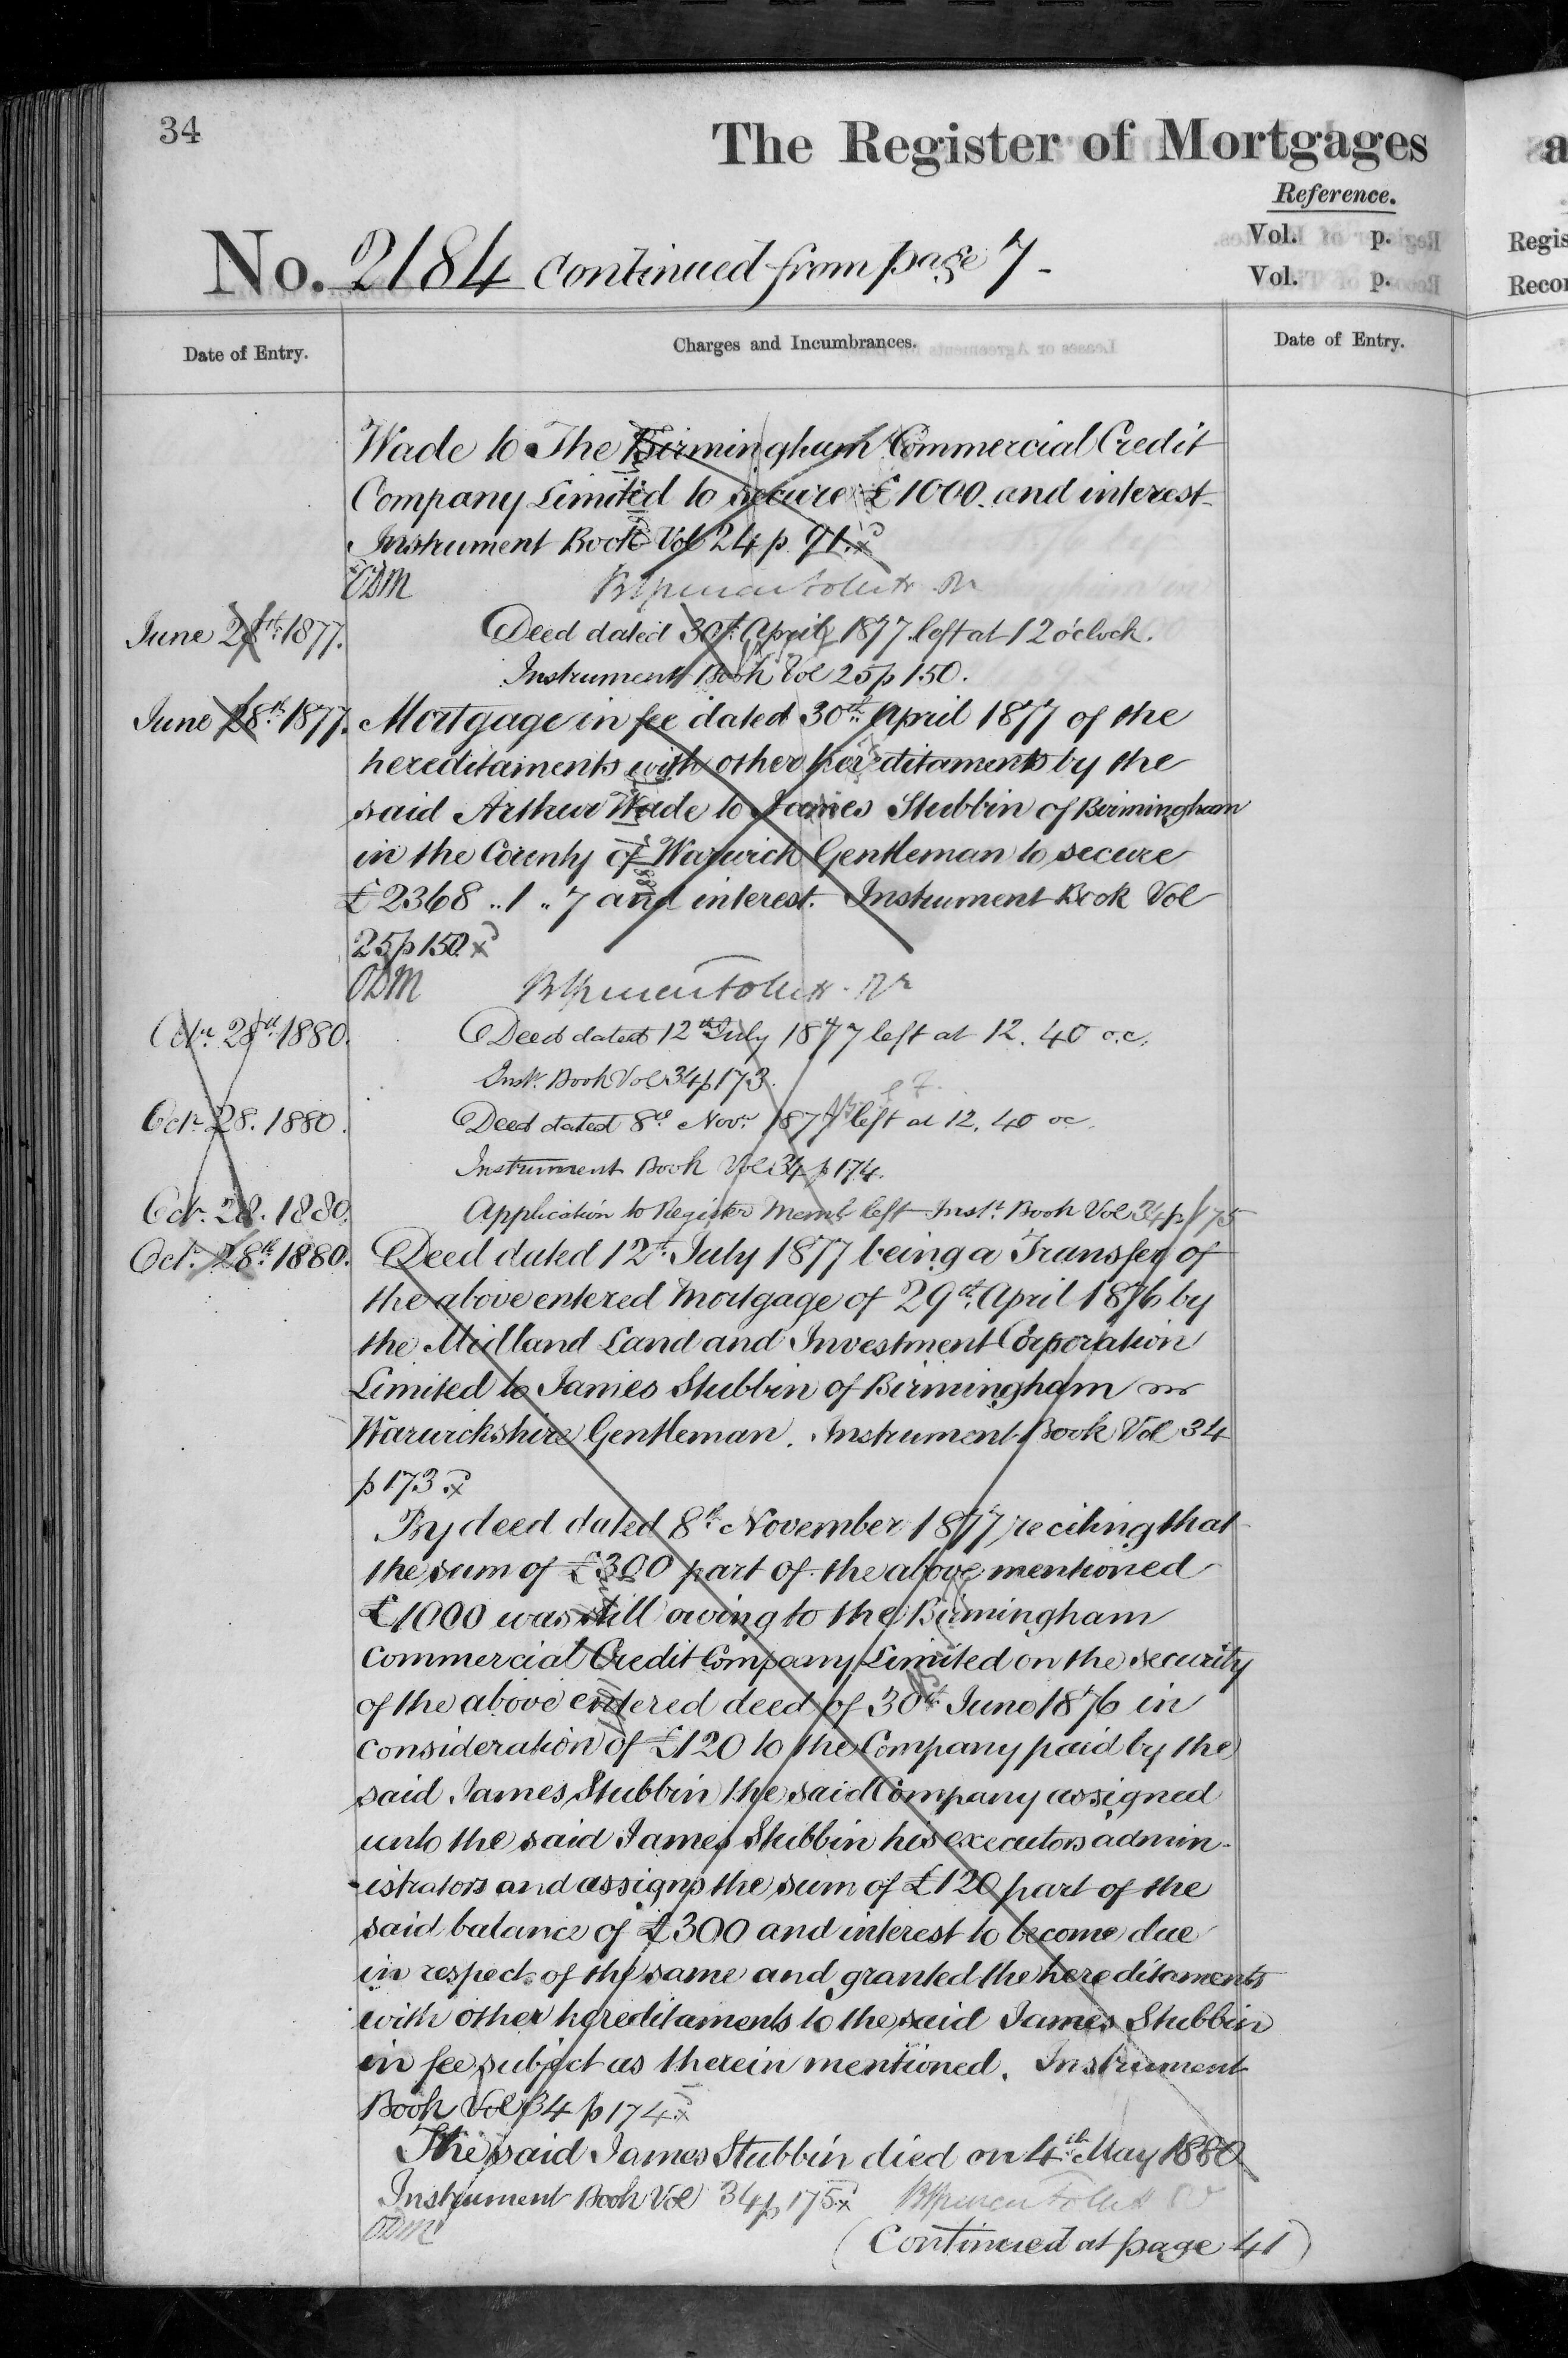 34
The Register of Mortgages
Reference.
Vol. p.
Vol. p.
No. 2184 continued from page 7-
Date of Entry.
Charges and Incumbrances.
Date of Entry.
Wade to The Birmingham Commercial Credit
Company Limited to secure £1000. and interest
Instrument Book Vol 24 p. 91.
ODM
June 28th. 1877.
Deed dated 30th. April 1877 left at 12 o'clock.
Instrument Book Vol 25 p 150.
June 28th. 1877.
Mortgage in fee dated 30th. April 1877 of the
hereditaments with other hereditaments by the
said Arthur Wade to James Stubbin of Birmingham
in the County of Warwick Gentleman to secure
£2368 .. 1 .. 7 and interest. Instrument Book Vol
25 p 150.
ODM
Octr. 28th 1880.
Deed dated 12th July 1877 left at 12. 40 o.c.
Inst. Book Vol 34 p 173.
Octr. 28. 1880.
Deed dated 8th Novr. 1877 left at 12. 40 oc.
Instrument Book Vol 34 p 174.
Octr. 28. 1880.
Application to Register Meml. left Inst. Book Vol 34 p 175
Oct. 28th. 1880.
Deed dated 12th. July 1877 being a Transfer of
the above entered Mortgage of 29th. April 1876 by
the Midland Land and Investment Corporation
Limited to James Stubbin of Birmingham
Warwickshire Gentleman. Instrument Book Vol 34
p 173.
By deed dated 8th. November 1877 reciting that
the sum of £300 part of the above mentioned
£1000 was still owing to the Birmingham
Commercial Credit Company Limited on the security
of the above entered deed of 30th. June 1876 in
consideration of £120 to the Company paid by the
said James Stubbin the said Company assigned
unto the said James Stubbin his executors admin-
-istrators and assigns the sum of £120 part of the
said balance of £300 and interest to become due
in respect of the same and granted the hereditaments
with other hereditaments to the said James Stubbin
in fee subject as therein mentioned. Instrument
Book Vol 34 p 174.
The said James Stubbin died on 4th May 1880
Instrument Book Vol 34 p 175.
ODM
(Continued at page 41)
a
Regis
Recor